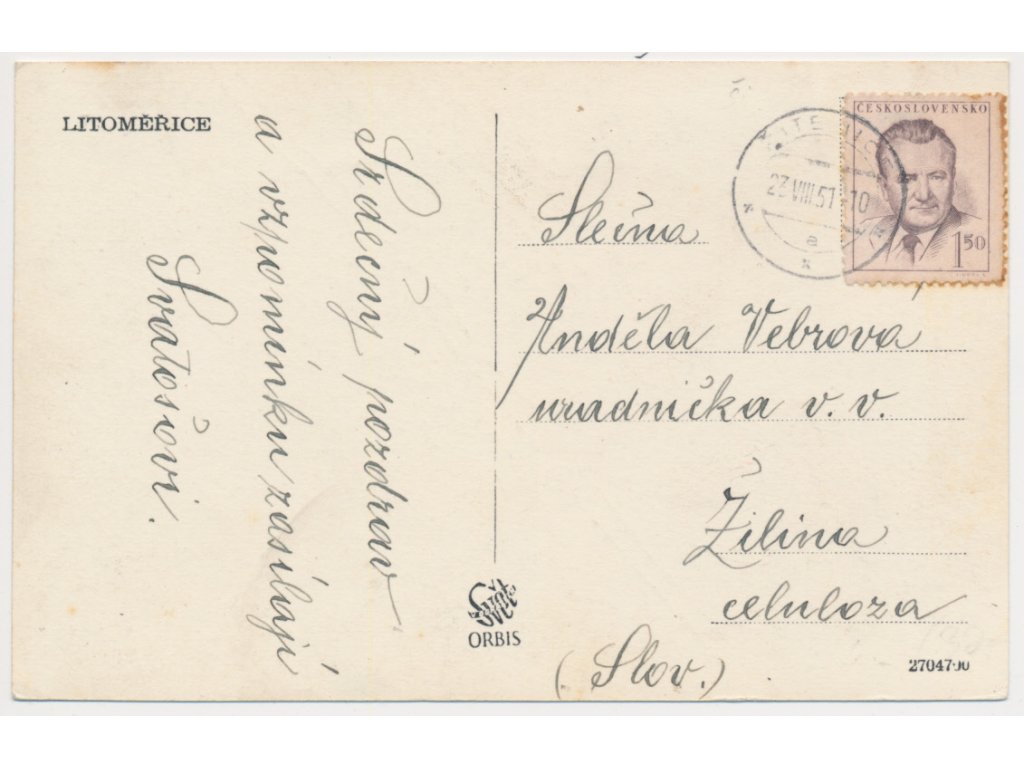 LITOMĚŘICE
Srdečný pozdrav
a vzpomínku zasílají
Svatošovi.
ČESKOSLOVENSKO
1.50
23.VIII.51-10
a
Slečna
Anděla Vebrova
uradnička v. v.
Žilina
celuloza
(Slov.)
ORBIS